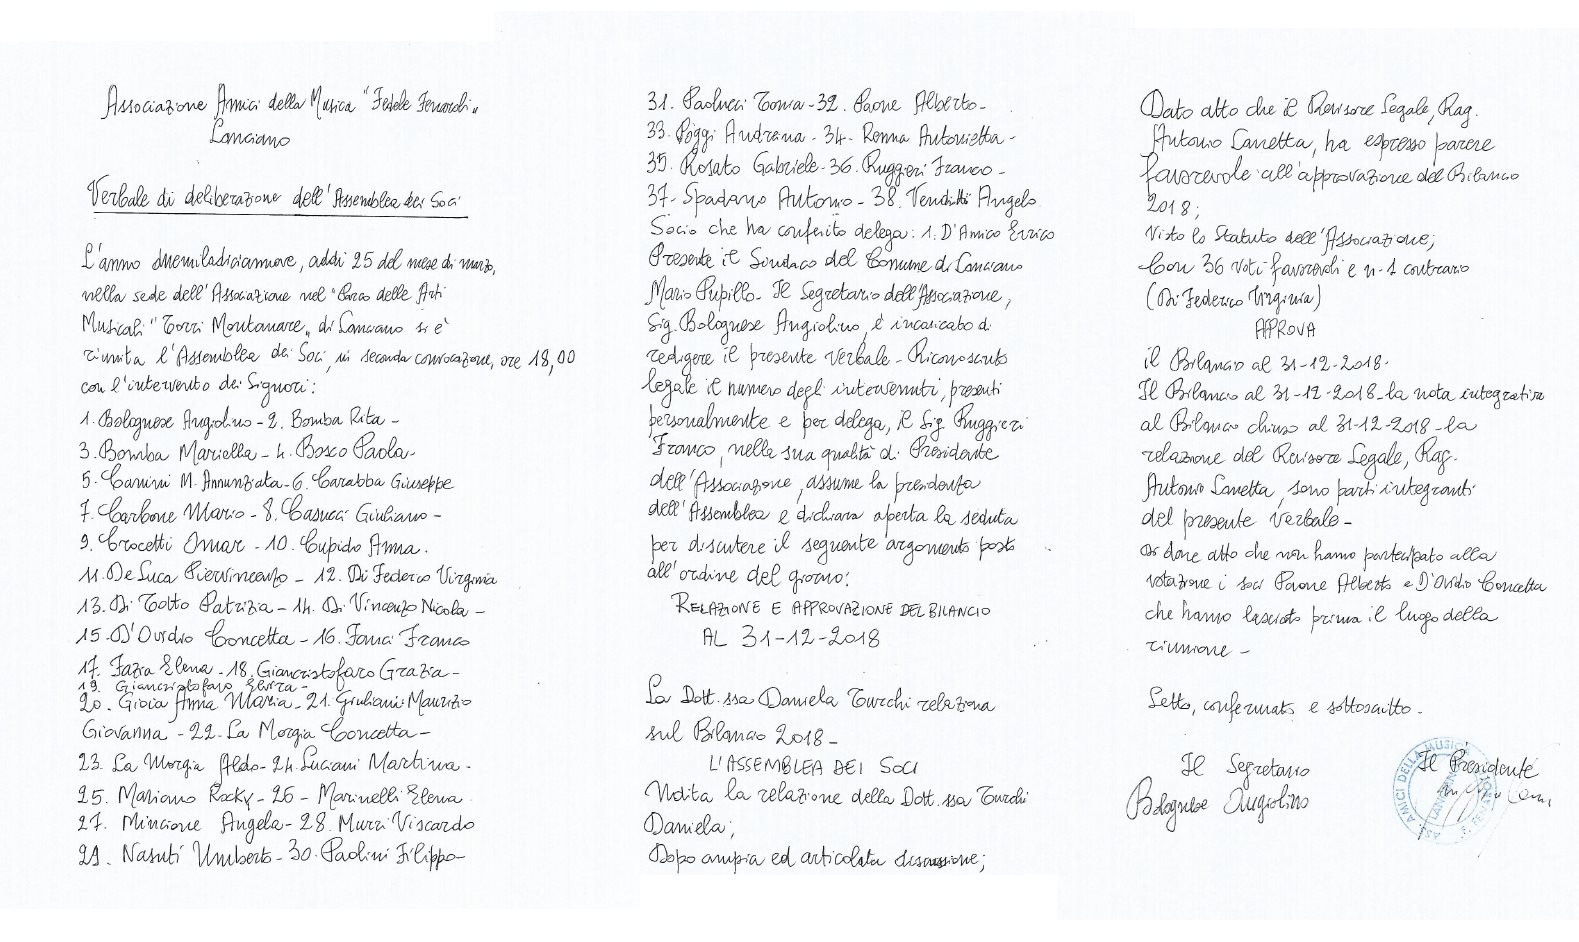 Associazione Amici della Musica "Fedele Fenaroli"
Lanciano
Verbale di deliberazione dell'Assemblea dei Soci
L'anno duemiladiciannove, addì 25 del mese di marzo,
nella sede dell'Associazione nel "Parco delle Arti
Musicali" Torri Montanare" di Lanciano si è
riunita l'Assemblea dei Soci, in seconda convocazione, ore 18,00
con l'intervento dei Signori:
1. Bolognese Angiolino - 2. Bomba Rita -
3. Bomba Mariella - 4. Bosco Paola -
5. Camini M. Annunziata - 6. Carabba Giuseppe
7. Carbone Mario - 8. Casucci Giuliano -
9. Crocetti Omar - 10. Cupido Anna.
11. De Luca Piervincenzo - 12. Di Federico Virginia
13. Di Totto Patrizia - 14. Di Vincenzo Nicola -
15. D'Ovidio Concetta - 16. Fanci Franco
17. Fazia Elena - 18. Giancristofaro Grazia -
19. Giancristofaro Elvira -
20. Gioia Anna Maria - 21. Giuliani Maurizio
Giovanna - 22. La Morgia Concetta -
23. La Morgia Aldo - 24. Luciani Martina -
25. Mariano Rocky - 26 - Marinelli Elena
27. Mincione Angela - 28. Murri Viscardo
29. Nasuti Umberto - 30. Paolini Filippo -
31. Paolucci Tonia - 32. Paone Alberto -
33. Poggi Andrana - 34. Renna Antonietta -
35. Rosato Gabriele - 36. Ruggieri Franco -
37. Spadano Antonio - 38. Venditti Angelo
Socio che ha conferito delega: 1. D'Amico Errico
Presente il Sindaco del Comune di Lanciano
Mario Pupillo - Il Segretario dell'Associazione,
Sig. Bolognese Angiolino, è incaricato di
redigere il presente verbale - Riconosciuto
legale il numero degli intervenuti, presenti
personalmente e per delega, il Sig. Ruggieri
Franco, nella sua qualità di Presidente
dell'Associazione, assume la presidenza
dell'Assemblea e dichiara aperta la seduta
per discutere il seguente argomento posto
all'ordine del giorno:
RELAZIONE E APPROVAZIONE DEL BILANCIO
AL 31-12-2018
La Dott.ssa Daniela Turchi relaziona
sul Bilancio 2018 -
L'ASSEMBLEA DEI SOCI
Udita la relazione della Dott.ssa Turchi
Daniela;
Dopo ampia ed articolata discussione;
Dato atto che il Revisore Legale, Rag.
Antonio Lanetta, ha espresso parere
favorevole all'approvazione del Bilancio
2018;
Visto lo Statuto dell'Associazione;
Con 36 voti favorevoli e n. 1 contrario
(Di Federico Virginia)
APPROVA
il Bilancio al 31-12-2018.
Il Bilancio al 31-12-2018 - la nota integrativa
al Bilancio chiuso al 31-12-2018 - la
relazione del Revisore Legale, Rag.
Antonio Lanetta, sono parti integranti
del presente verbale -
Si dare atto che non hanno partecipato alla
votazione i soci Paone Alberto e D'Ovidio Concetta
che hanno lasciato prima il luogo della
riunione -
Letto, confermato e sottoscritto -
Il Segretario
Bolognese Angiolino
Il Presidente
AMICI DELLA MUSICA
LANCIANO